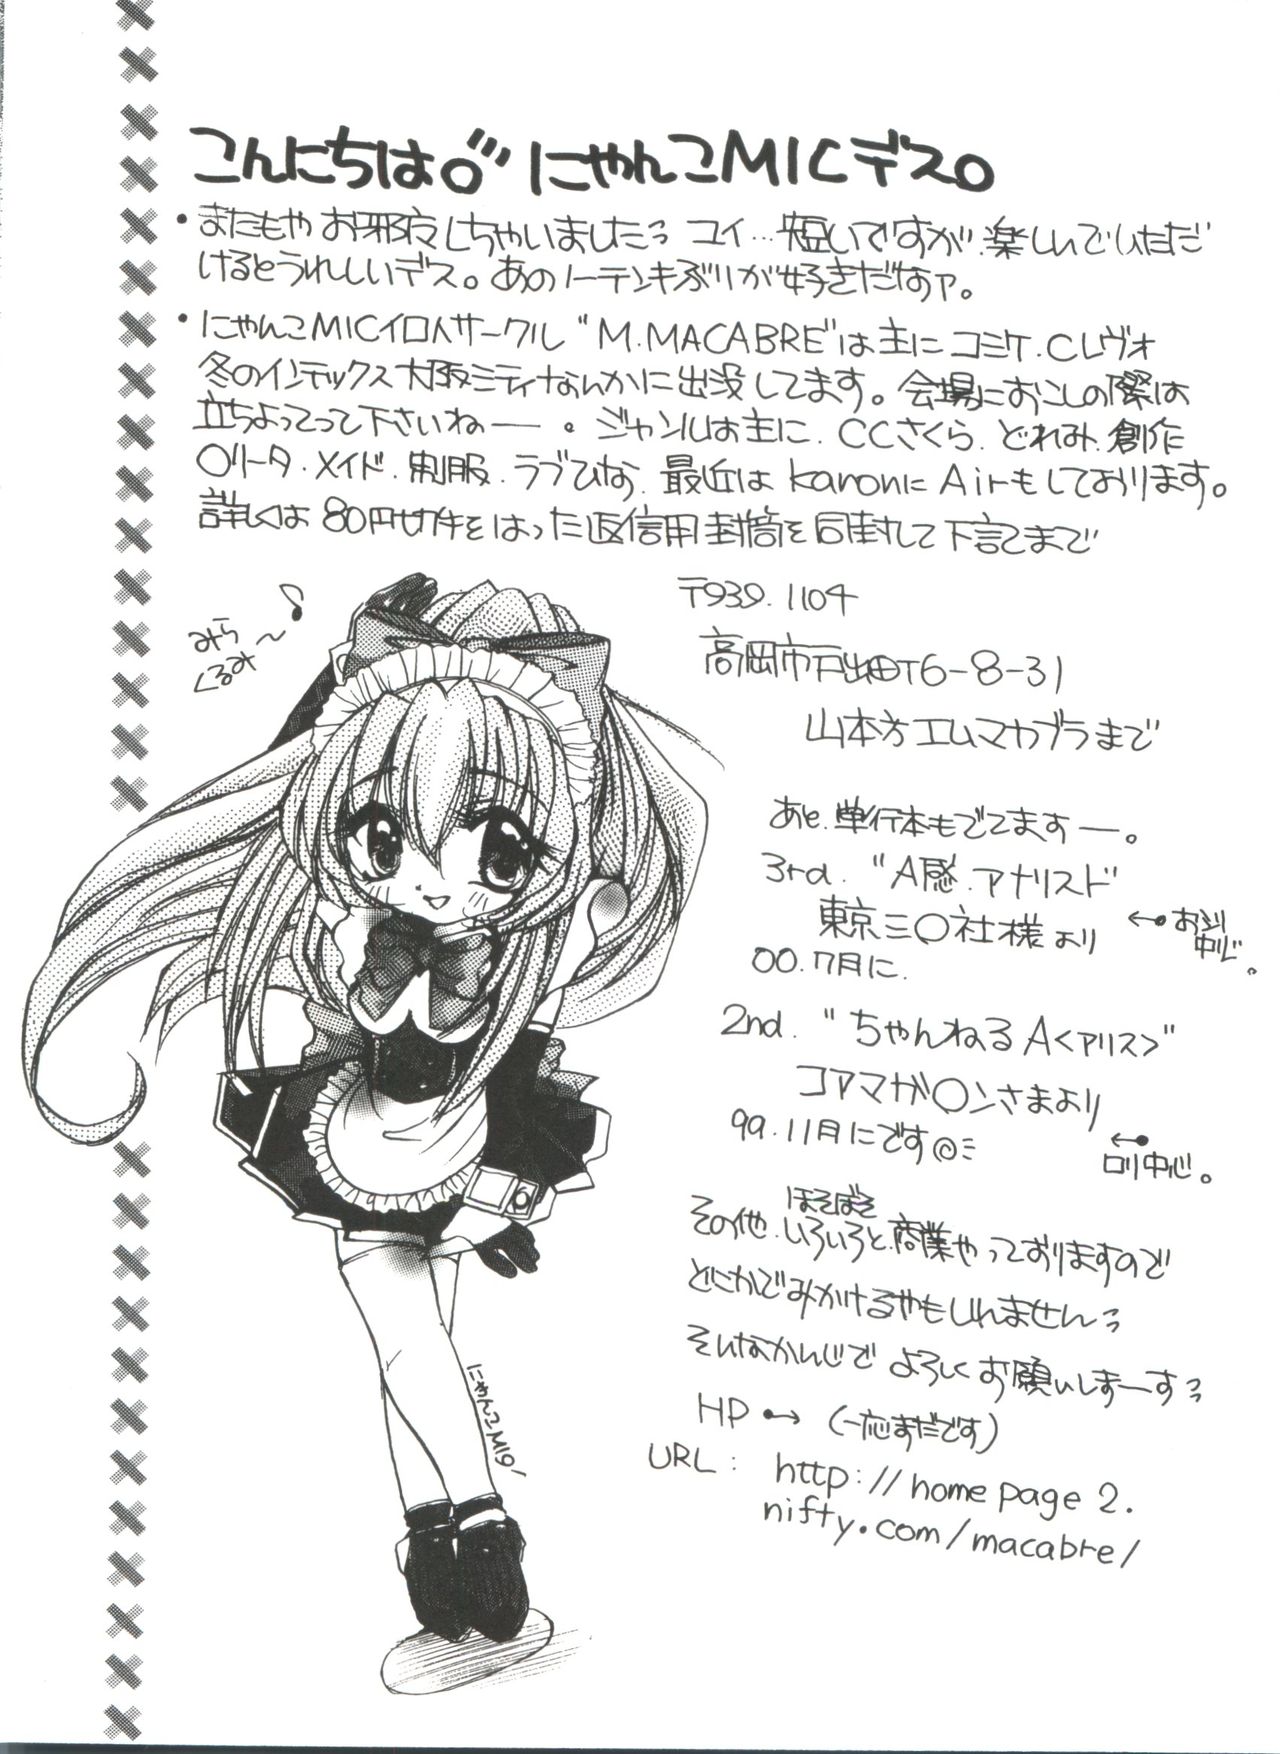 こんにちは○〃 にゃんこMICデス。
・またもや お邪夜しちゃいましたっ コイ…短いですが、楽しんでいただ
けるとうれしいデス。あのノーテンキぶりが好きだなァ。
・にゃんこMIC サークル "M.MACABRE"は主に コミケ.Cレヴォ
冬のインテックス大阪 シティなんかに出没してます。会場におこしの際は
立ちよってって下さいねー。ジャンルは主に.CCさくら.どれみ.創作
○リータ.メイド.制服.ラブひな.最近は kanonに Airもしております。
詳しくは 80円切手をはった返信用封筒を同封して下記まで
みら
くるみ〜♪
〒939.1104
高岡市戸出町6-8-31
山本方 エムマカブラまで
あと.単行本もでてますー。
3rd. "A感.アナリスト"
東京三○社様より ← おシリ
中心。
00.7月に.
2nd. "ちゃんねるA<アリス>"
コアマガ○ンさまより
99.11月にです@ミ
← ロリ中心。
ほそぼそ
その他.いろいろと.商業やっておりますので
どこかでみかけるやもしれませんっ
そんなかんじで よろしくお願いしまーすっ
HP → (一応まだです)
URL: http://homepage2.
nifty.com/macabre/
にゃんこMIC